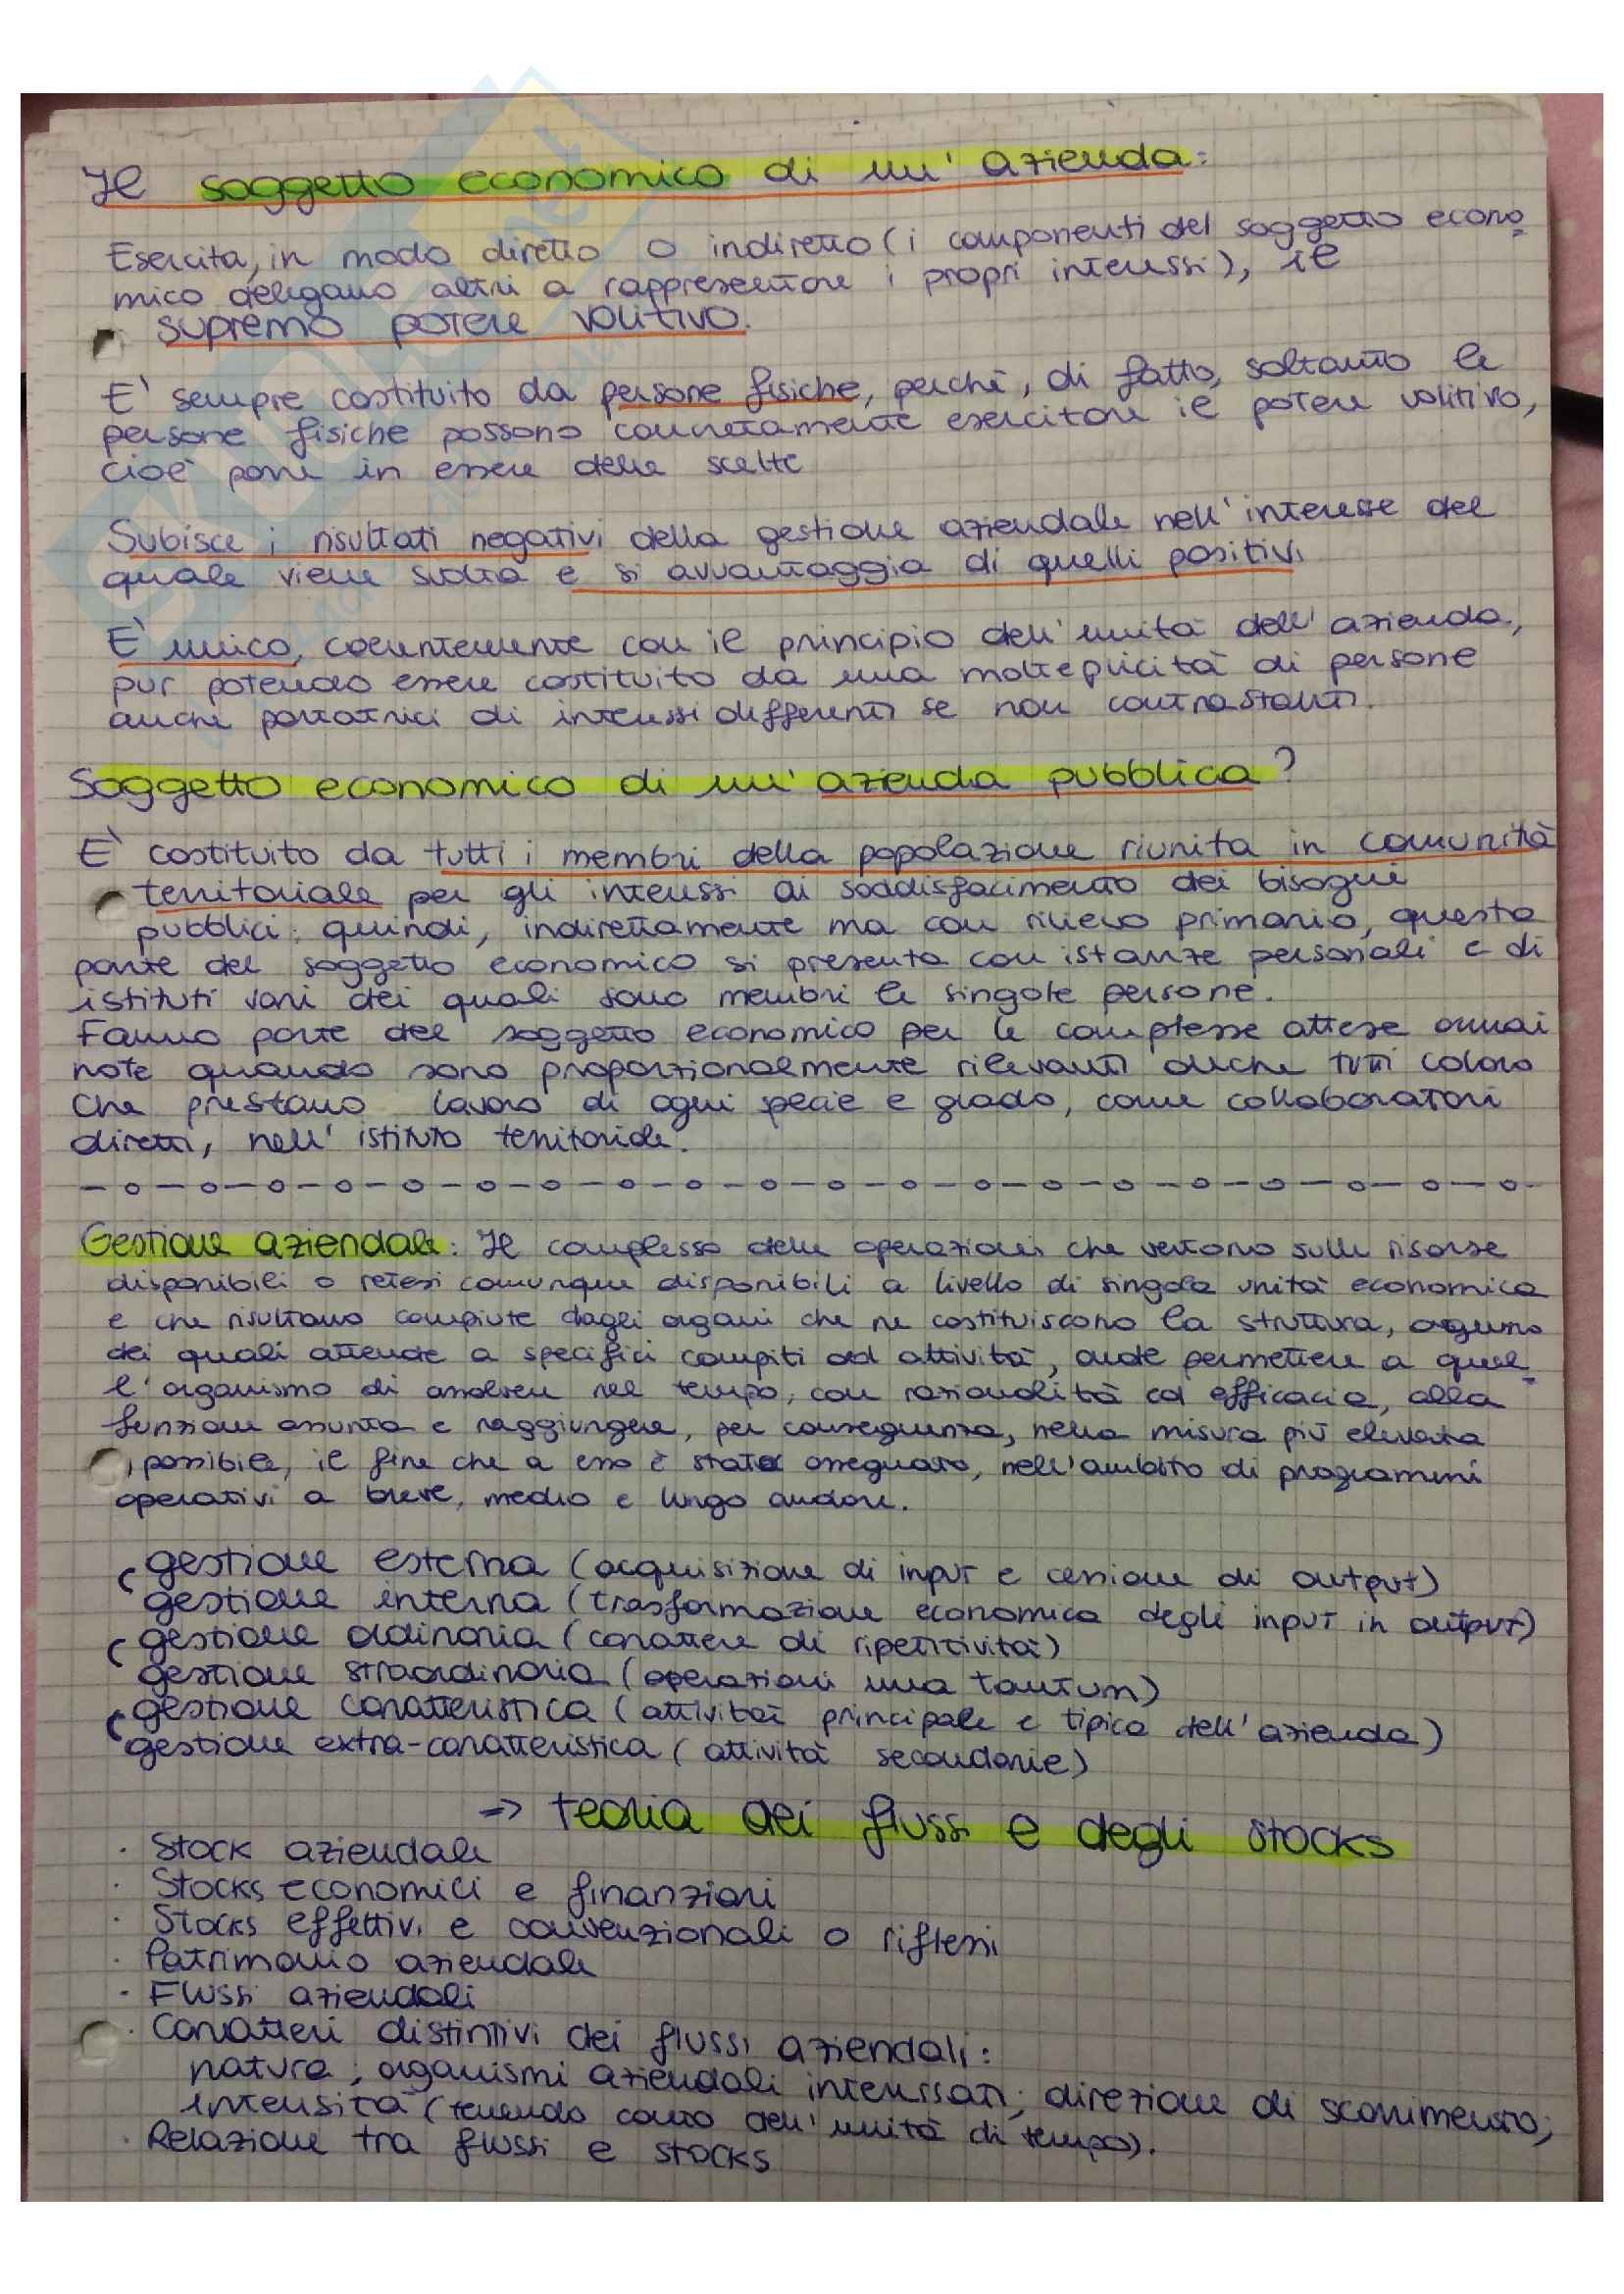 Il soggetto economico di un'azienda:
Esercita, in modo diretto o indiretto (i componenti del soggetto econo-
mico delegano altri a rappresentare i propri interessi), il
supremo potere volitivo.
E' sempre costituito da persone fisiche, perché, di fatto, soltanto le
persone fisiche possono concretamente esercitare il potere volitivo,
cioè porre in essere delle scelte
Subisce i risultati negativi della gestione aziendale nell'interesse del
quale viene svolta e si avvantaggia di quelli positivi
E' unico, coerentemente con il principio dell'unità dell'azienda,
pur potendo essere costituito da una molteplicità di persone
anche portatrici di interessi differenti se non contrastanti.
Soggetto economico di un'azienda pubblica?
E' costituito da tutti i membri della popolazione riunita in comunità
territoriale per gli interessi di soddisfacimento dei bisogni
pubblici; quindi, indirettamente ma con rilievo primario, questa
parte del soggetto economico si presenta con istanze personali e di
istituti vari dei quali sono membri le singole persone.
Fanno parte del soggetto economico per le complesse attese ormai
note quando sono proporzionalmente rilevanti anche tutti coloro
che prestano lavoro di ogni specie e grado, come collaboratori
diretti, nell'istituto territoriale.
Gestione aziendale: Il complesso delle operazioni che vertono sulle risorse
disponibili o resesi comunque disponibili a livello di singola unità economica
e che risultano compiute dagli organi che ne costituiscono la struttura, ognuno
dei quali attende a specifici compiti od attività, onde permettere a quel-
l'organismo di assolvere nel tempo, con razionalità ed efficacia, alla
funzione assunta e raggiungere, per conseguenza, nella misura più elevata
possibile, il fine che a esso è stato assegnato, nell'ambito di programmi
operativi a breve, medio e lungo andare.
gestione esterna (acquisizione di input e cessione di output)
gestione interna (trasformazione economica degli input in output)
gestione ordinaria (carattere di ripetitività)
gestione straordinaria (operazioni una tantum)
gestione caratteristica (attività principale e tipica dell'azienda)
gestione extra-caratteristica (attività secondarie)
=> teoria dei flussi e degli stocks
· Stock aziendale
· Stocks economici e finanziari
· Stocks effettivi e convenzionali o riflessi
· Patrimonio aziendale
· Flussi aziendali
· Caratteri distintivi dei flussi aziendali:
natura; organismi aziendali interessati; direzione di scorrimento;
intensità (tenendo conto dell'unità di tempo).
· Relazione tra flussi e stocks